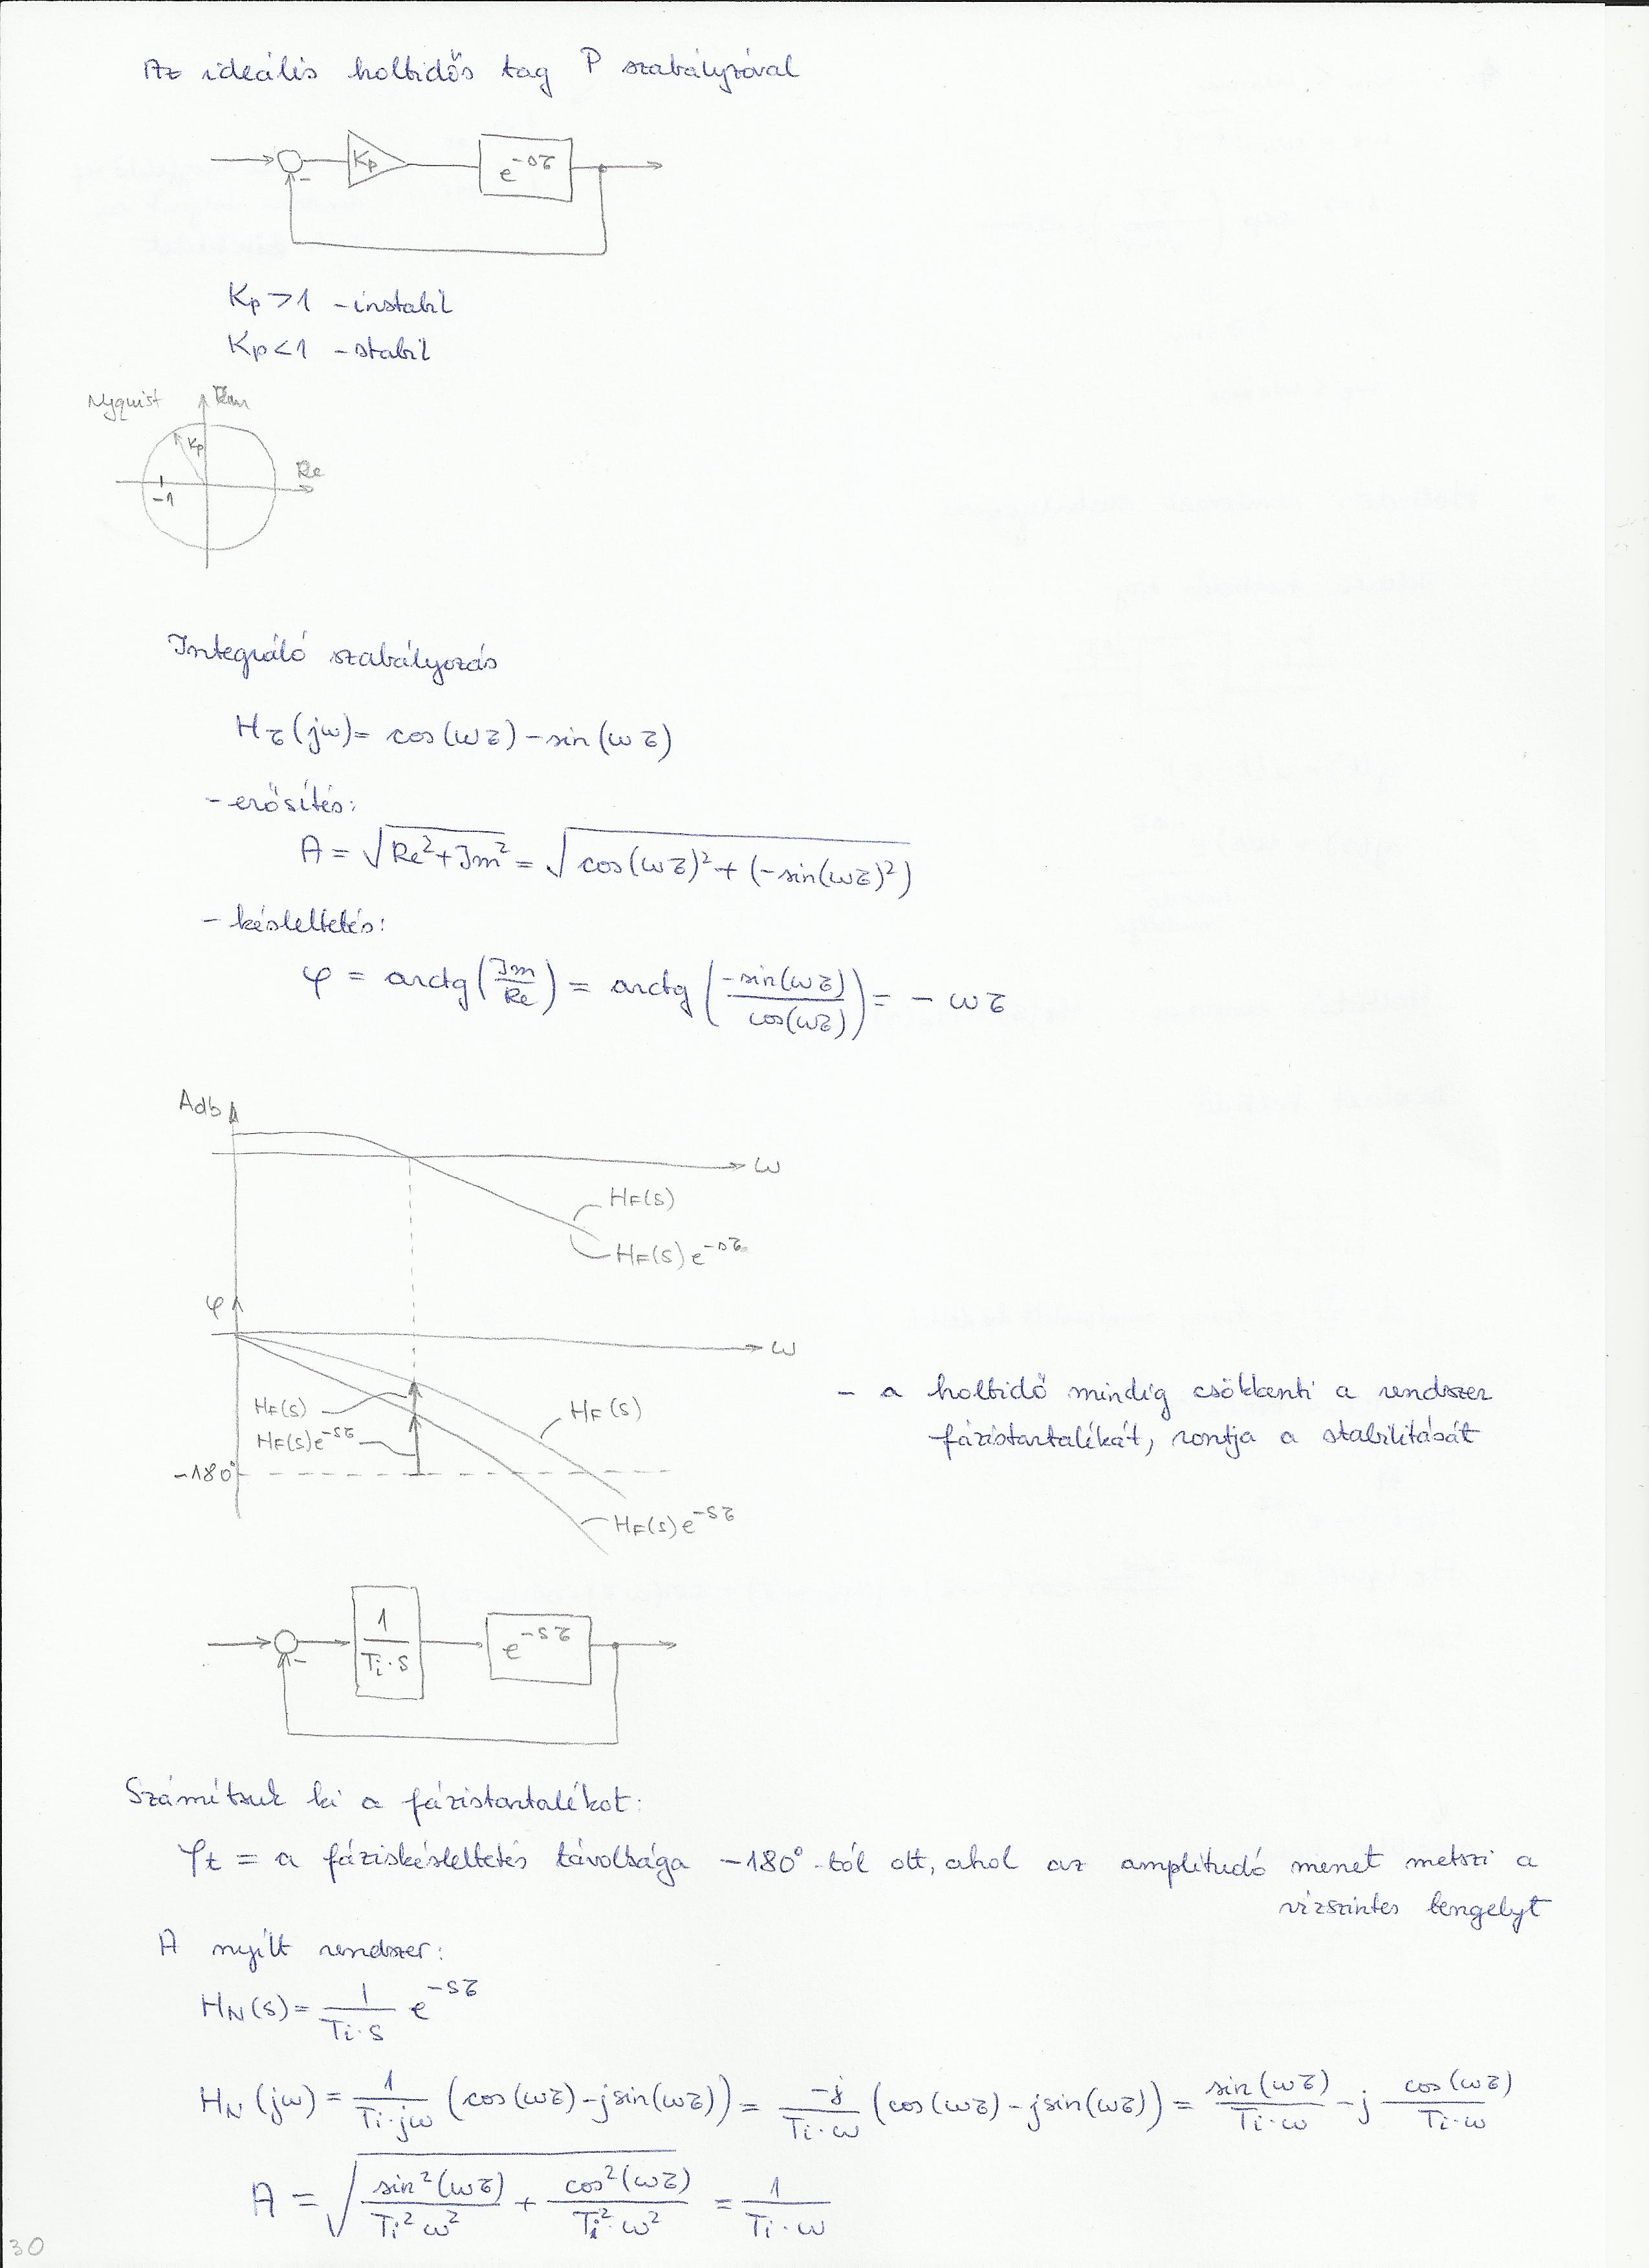 Az ideális holtidős tag P szabályzóval
Kp
e^-sτ
-
Kp>1 -instabil
Kp<1 -stabil
Nyquist
Im
Kp
Re
-1
Integráló szabályozás
Hτ(jω)= cos(ωτ)-sin(ωτ)
- erősítés:
A = √(Re²+Jm²) = √(cos(ωτ)²+(-sin(ωτ)²))
- késleltetés:
φ = arctg(Jm/Re) = arctg(-sin(ωτ)/cos(ωτ)) = - ωτ
Adb
ω
HF(s)
HF(s)e^-sτ
φ
ω
HF(s)
HF(s)
HF(s)e^-sτ
-180°
HF(s)e^-sτ
- a holtidő mindig csökkenti a rendszer
fázistartalékát, rontja a stabilitását
1/(Ti·s)
e^-sτ
-
Számítsuk ki a fázistartalékot:
φt = a fáziskésleltetés távolsága -180°-tól ott, ahol az amplitudó menet metszi a
vízszintes tengelyt
A nyílt rendszer:
HN(s)= 1/(Ti·s) e^-sτ
HN(jω) = 1/(Ti·jω) (cos(ωτ)-jsin(ωτ)) = -j/(Ti·ω) (cos(ωτ)-jsin(ωτ)) = sin(ωτ)/(Ti·ω) - j cos(ωτ)/(Ti·ω)
A = √(sin²(ωτ)/(Ti²ω²) + cos²(ωτ)/(Ti²·ω²)) = 1/(Ti·ω)
30